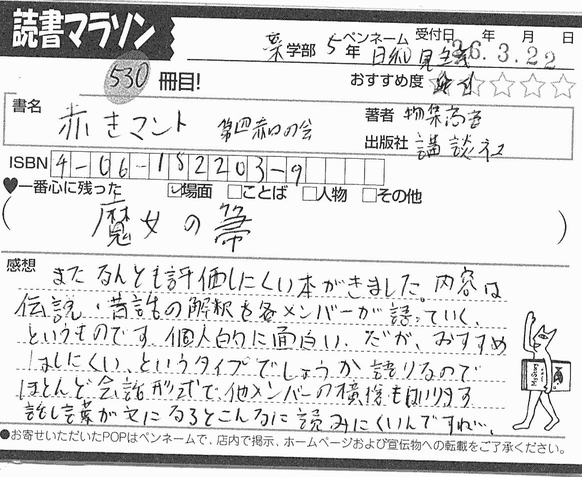 読書マラソン
薬学部 5年 ペンネーム 日和見主義 受付日 年 月 日
26.3.22
530 冊目!
おすすめ度
書名 赤きマント 第四赤口の会
著者 物集高音
出版社 講談社
ISBN 4-06-182203-9
♥一番心に残った ☑場面 □ことば □人物 □その他
(魔女の箒)
感想
またなんとも評価しにくい本がきました。内容は
伝説・昔話の解釈を各メンバーが語っていく、
というものです。個人的に面白い、だが、おすすめ
はしにくい、というタイプでしょうか 語りなので
ほとんど会話形式で、他メンバーの横槍も有ります
話し言葉が文になるとこんなに読みにくいんですね…。
●お寄せいただいたPOPはペンネームで、店内で掲示、ホームページおよび宣伝物への転載をご了承ください。